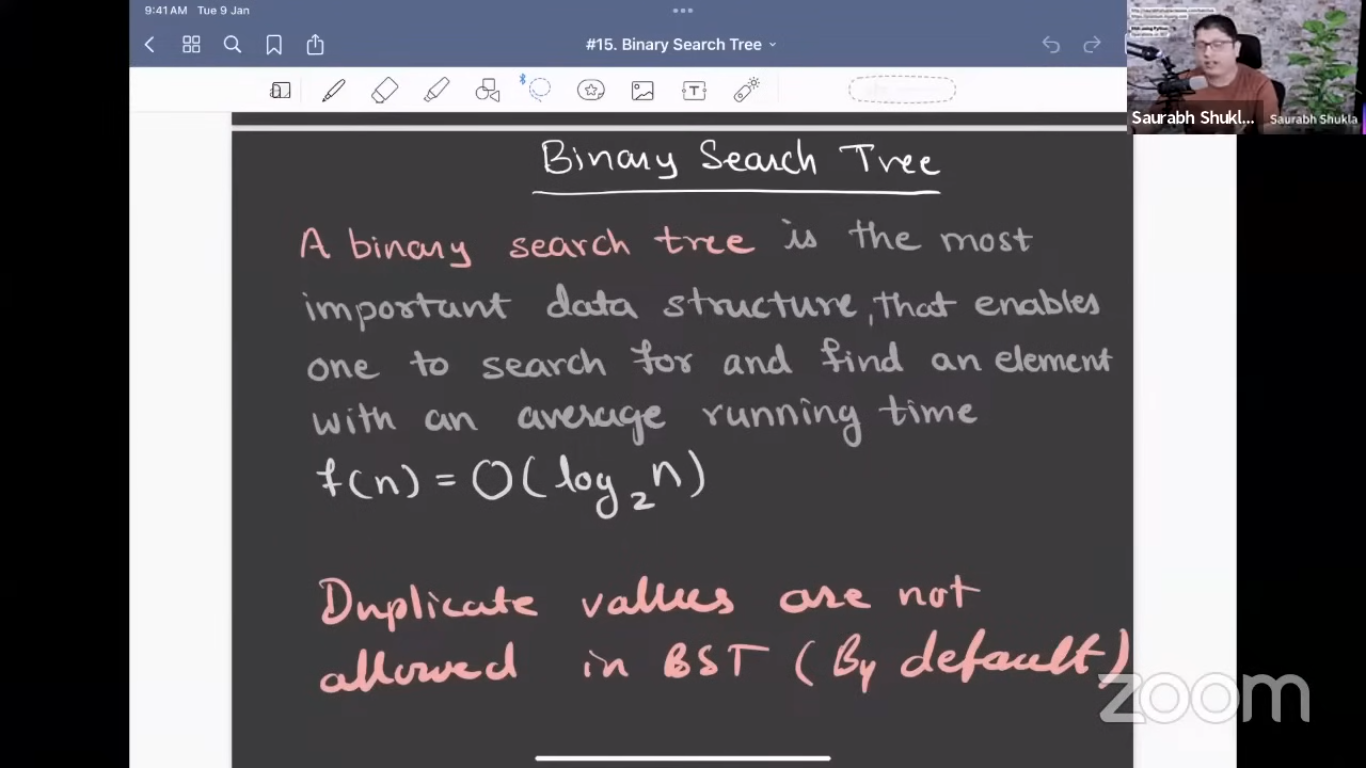 9:41 AM Tue 9 Jan
#15. Binary Search Tree
T
Saurabh Shukl...
Saurabh Shukla
Binary Search Tree
A binary search tree is the most
important data structure, that enables
one to search for and find an element
with an average running time
f(n) = O(log₂n)
Duplicate values are not
allowed in BST (By default)
zoom